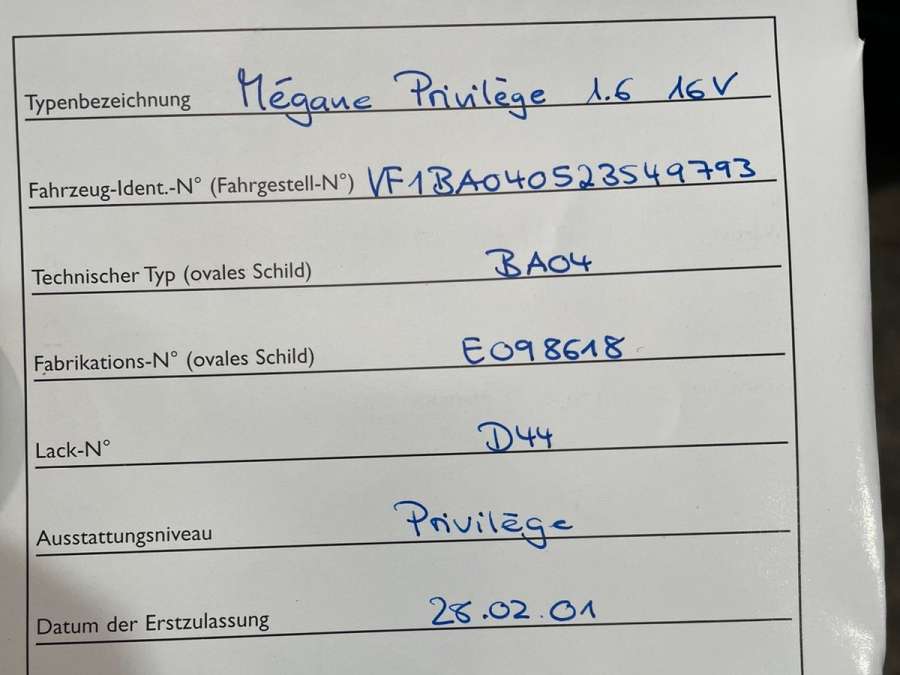 Typenbezeichnung Mégane Privilège 1.6 16V
Fahrzeug-Ident.-N° (Fahrgestell-N°) VF1BA040523549793
Technischer Typ (ovales Schild) BA04
Fabrikations-N° (ovales Schild) E098618
Lack-N° D44
Ausstattungsniveau Privilège
Datum der Erstzulassung 28.02.01